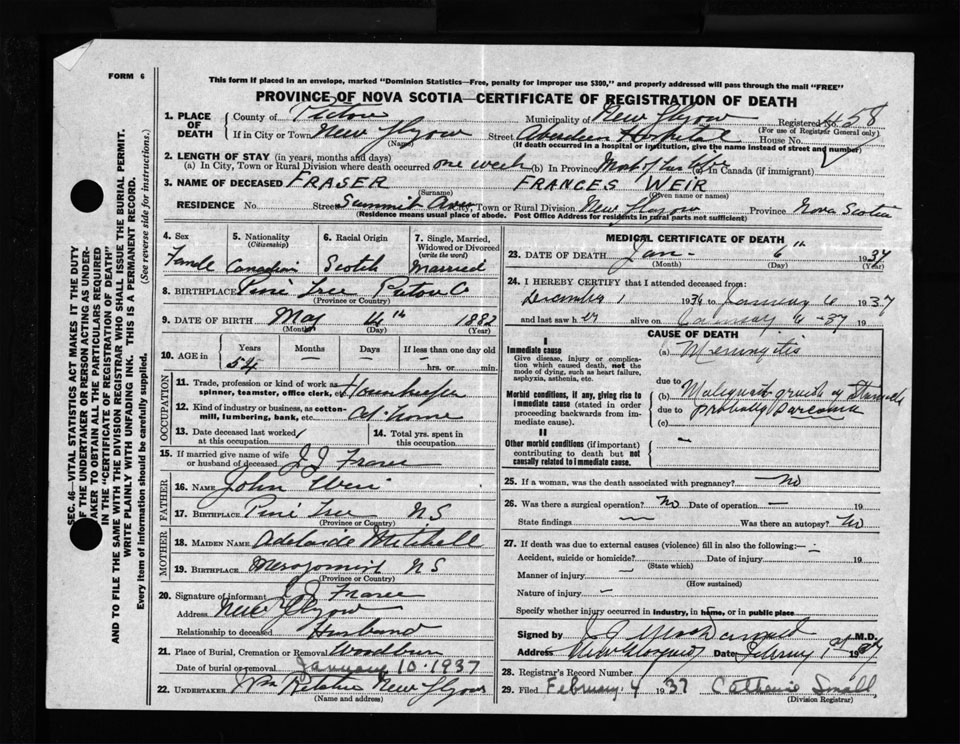 FORM 6
This form if placed in an envelope, marked "Dominion Statistics—Free, penalty for improper use $300," and properly addressed will pass through the mail "FREE"
PROVINCE OF NOVA SCOTIA—CERTIFICATE OF REGISTRATION OF DEATH
SEC. 46—VITAL STATISTICS ACT MAKES IT THE DUTY
OF THE UNDERTAKER OR PERSON ACTING AS UNDER-
TAKER TO OBTAIN ALL THE PARTICULARS REQUIRED
IN THE "CERTIFICATE OF REGISTRATION OF DEATH"
AND TO FILE THE SAME WITH THE DIVISION REGISTRAR WHO SHALL ISSUE THE BURIAL PERMIT.
WRITE PLAINLY WITH UNFADING INK. THIS IS A PERMANENT RECORD.
Every item of information should be carefully supplied. (See reverse side for instructions.)
1. PLACE OF DEATH
County of Pictou Municipality of New Glasgow Registered No. 58
(For use of Registrar General only)
If in City or Town New Glasgow Street Aberdeen Hospital House No.
(Name) (If death occurred in a hospital or institution, give the name instead of street and number)
2. LENGTH OF STAY (in years, months and days)
(a) In City, Town or Rural Division where death occurred one week (b) In Province Most of her life (c) in Canada (if immigrant)
3. NAME OF DECEASED FRASER FRANCES WEIR
(Surname) (Given name or names)
RESIDENCE No. Street Summit Ave City, Town or Rural Division New Glasgow Province Nova Scotia
(Residence means usual place of abode. Post Office Address for residents in rural parts not sufficient)
4. Sex 5. Nationality (Citizenship) 6. Racial Origin 7. Single, Married, Widowed or Divorced (write the word)
Female Canadian Scotch Married
8. BIRTHPLACE Pine Tree Pictou Co
(Province or Country)
9. DATE OF BIRTH May 4th 1882
(Month) (Day) (Year)
10. AGE in Years Months Days If less than one day old
54 — — hrs. or min.
OCCUPATION
11. Trade, profession or kind of work as spinner, teamster, office clerk, etc. Housekeeper
12. Kind of industry or business, as cotton-mill, lumbering, bank, etc. At home
13. Date deceased last worked at this occupation
14. Total yrs. spent in this occupation
15. If married give name of wife or husband of deceased J J Fraser
FATHER
16. NAME John Weir
17. BIRTHPLACE Pine Tree NS
(Province or Country)
MOTHER
18. MAIDEN NAME Adelaide Mitchell
19. BIRTHPLACE Merigomish NS
(Province or Country)
20. Signature of informant J J Fraser
Address New Glasgow
Relationship to deceased Husband
21. Place of Burial, Cremation or Removal Woodburn
Date of burial or removal January 10. 1937
22. UNDERTAKER Wm Ritchie New Glasgow
(Name and address)
MEDICAL CERTIFICATE OF DEATH
23. DATE OF DEATH Jan- 6th 1937
(Month) (Day) (Year)
24. I HEREBY CERTIFY that I attended deceased from:
December 1 1936 to January 6 1937
and last saw her alive on January 6-37 19
CAUSE OF DEATH
I
Immediate cause
Give disease, injury or complication which caused death, not the mode of dying, such as heart failure, asphyxia, asthenia, etc.
(a) Meningitis
due to
Morbid conditions, if any, giving rise to immediate cause (stated in order proceeding backwards from immediate cause).
(b) Malignant growth of
due to probably Sarcoma
(c)
II
Other morbid conditions (if important) contributing to death but not causally related to immediate cause.
25. If a woman, was the death associated with pregnancy? No
26. Was there a surgical operation? No Date of operation 19
State findings — Was there an autopsy? No
27. If death was due to external causes (violence) fill in also the following:—
Accident, suicide or homicide? Date of injury 19
(State which)
Manner of injury
(How sustained)
Nature of injury
Specify whether injury occurred in industry, in home, or in public place
Signed by J J MacDonald M.D.
Address New Glasgow Date February 1st 1937
28. Registrar's Record Number
29. Filed February 4 1937 Catherine Small
(Division Registrar)